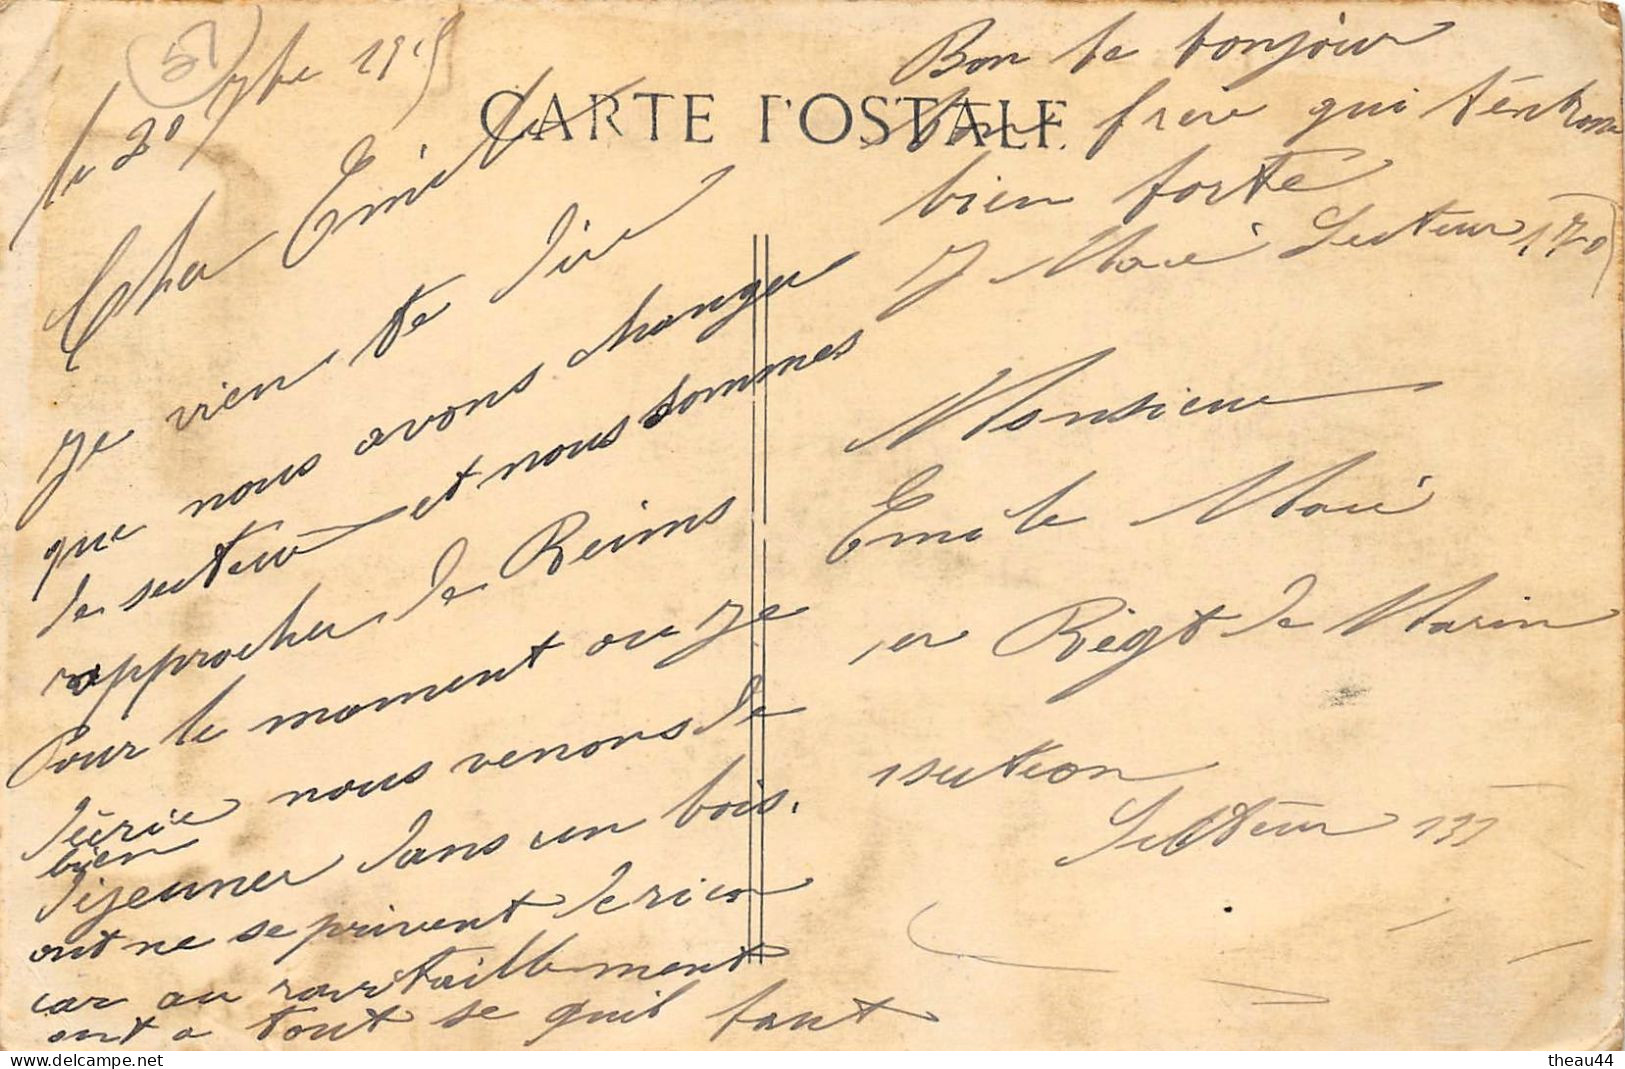 51
le 20 7bre 1915
CARTE POSTALE
Cher Emile
Je vien te dire
que nous avons changer
de secteur et nous sommes
rapprocher de Reims
Pour le moment ou Je
décrie nous venons de
bien
déjeuner dans un bois.
ont ne se privent de rien
car au ravitaillement
ont a tout se quil faut
Bon le bonjour
ton frère qui
bien forte
J Marié Secteur 170
Monsieur
Emile Marié
1er Régt de Marin
1 section
Secteur 131
theau44